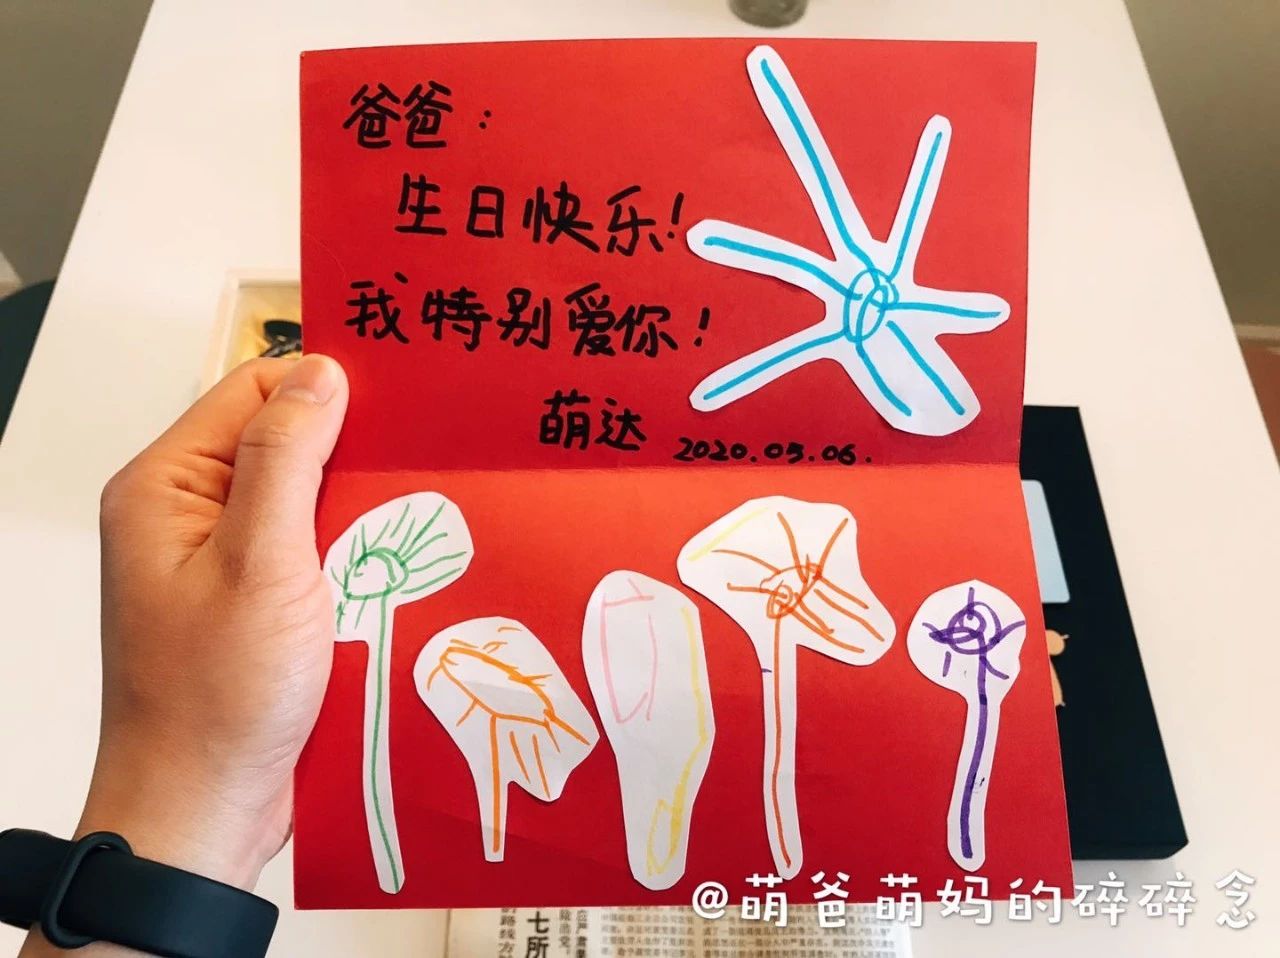 爸爸：
生日快乐！
我特别爱你！
萌达 2020.05.06.
@萌爸萌妈的碎碎念
七所